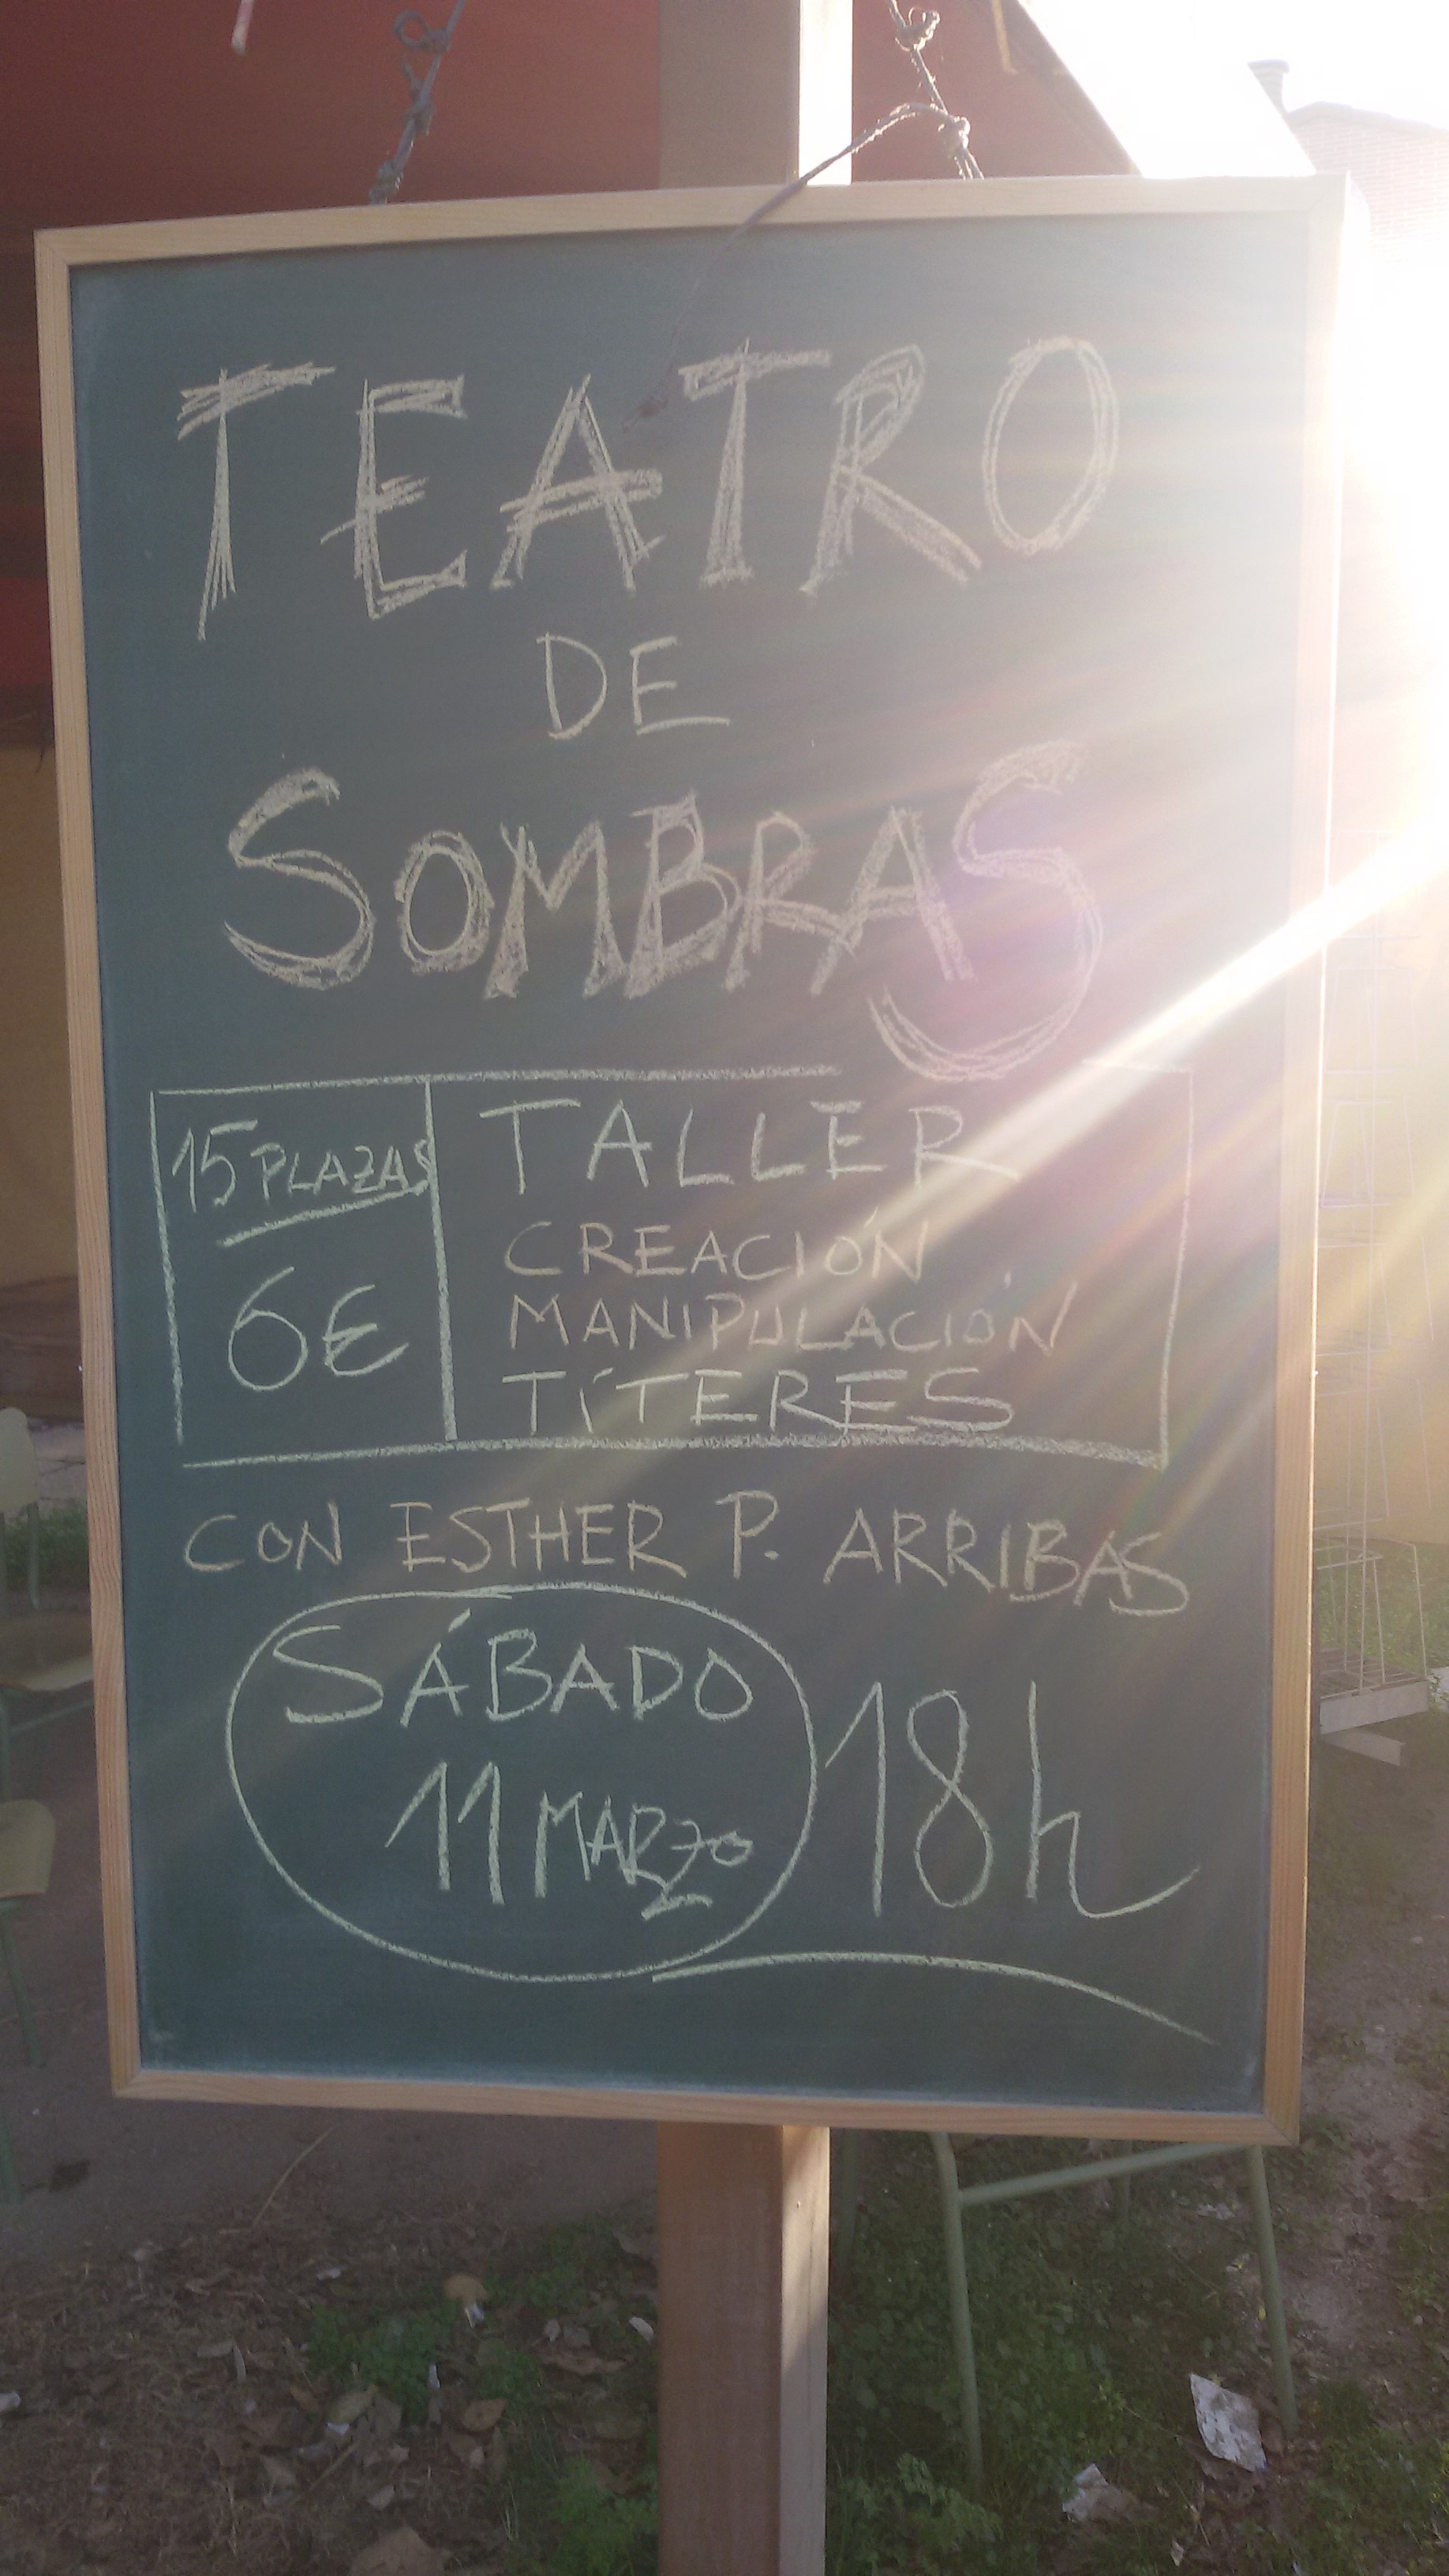 TEATRO
DE
SOMBRAS
15 PLAZAS
6€
TALLER
CREACIÓN
MANIPULACIÓN
TÍTERES
CON ESTHER P. ARRIBAS
SÁBADO
11 MARZO
18h